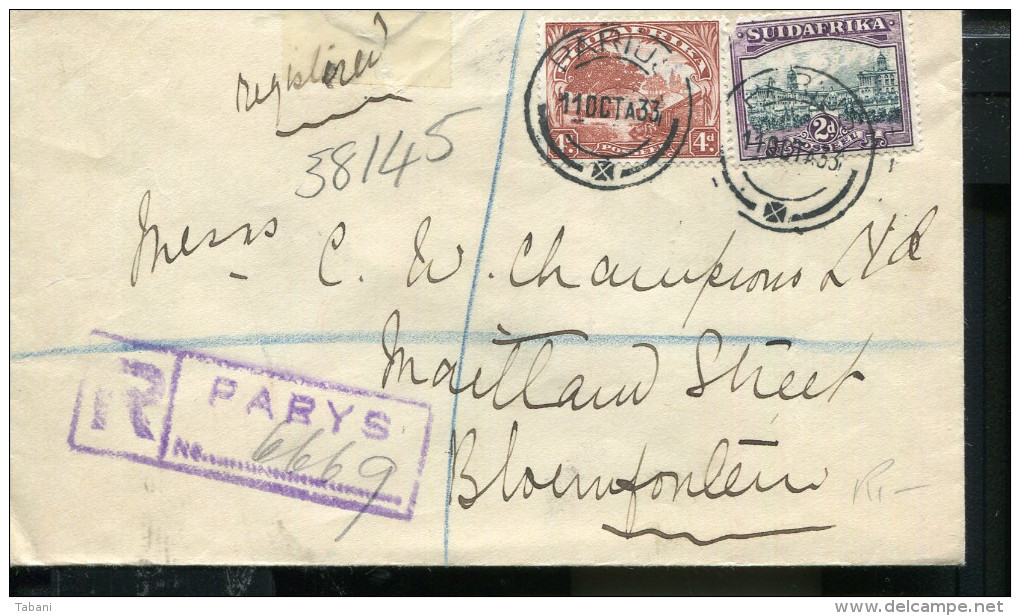 Registered
38145
SUIDAFRIKA
2d
4d 4d
11 OCT A 33
11 OCT A 33
Messrs C. W. Champions Ltd
Maitland Street
Bloemfontein
R PARYS
No. 6669
Tabani
delcampe.net